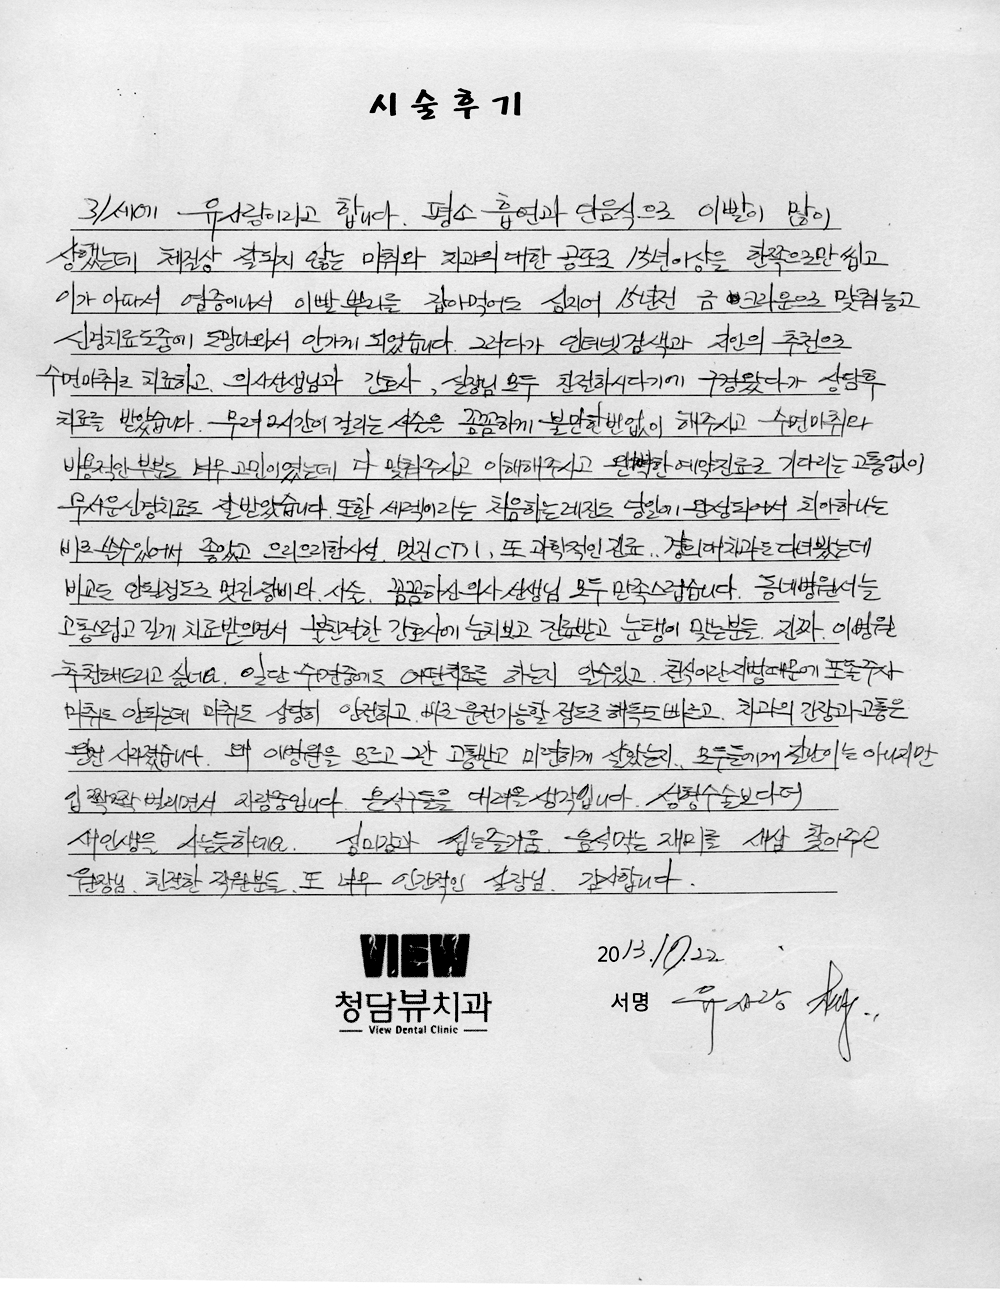 시술후기
31세에 유사랑이라고 합니다. 평소 흡연과 단음식으로 이빨이 많이
상했는데 체질상 잘되지 않는 마취와 치과의 대한 공포로 15년이상을 한쪽으로만 씹고
이가 아파서 염증이나서 이빨 뿌리를 갉아먹어도 심지어 15년전 금 크라운으로 맞춰놓고
신경치료도중에 도망다와서 안가게 되었습니다. 그러다가 인터넷검색과 지인의 추천으로
수면마취로 치료하고. 의사선생님과 간호사, 실장님 모두 친절하시다기에 구경왔다가 상담후
치료를 받았습니다. 무려 2시간이 걸리는 시술을 꼼꼼하게 불만한번없이 해주시고 수면마취와
비용적인 부분도 너무 고민이였는데 다 맞춰주시고 이해해주시고 완벽한 예약진료로 기다리는 고통없이
무서운 신경치료도 잘받았습니다. 또한 세렉이라는 처음하는 레진도 당일에 완성되어서 치아하나는
바로쓸수있어서 좋았고 으리으리한시설. 멋진CT기, 또 과학적인 진료.. 경희대치과도 다녀봤는데
비교도 안될정도로 멋진장비와. 시술. 꼼꼼하신 의사선생님 모두 만족스럽습니다. 동네병원서는
고통스럽고 길게 치료받으면서 불친절한 간호사에 눈치보고 진료받고 눈탱이 맞는분들. 진짜. 이병원
추천해드리고 싶네요. 일단 수면중에도 어떤치료를 하는지 알수있고. 천식이란 지병때문에 포폴주사
마취도 안되는데 마취도 상당히 안전하고. 바로 운전가능할 정도로 해독도 빠르고. 치과의 긴장과 고통은
사라졌습니다. 왜 이병원을 모르고 그간 고통받고 미련하게 살았는지. 모두들에게 잘난이는 아니지만
입 쫙쫙 벌리면서 자랑중입니다. 온식구들을 데려올 생각입니다. 성형수술보다 더
새인생을 사는듯하네요. 심미감과 씹는즐거움. 음식먹는 재미를 새삼 찾아주신
원장님. 친절한 직원분들. 또 너무 인간적인 실장님. 감사합니다.
VIEW
청담뷰치과
View Dental Clinic
2013.10.22
서명 유사랑